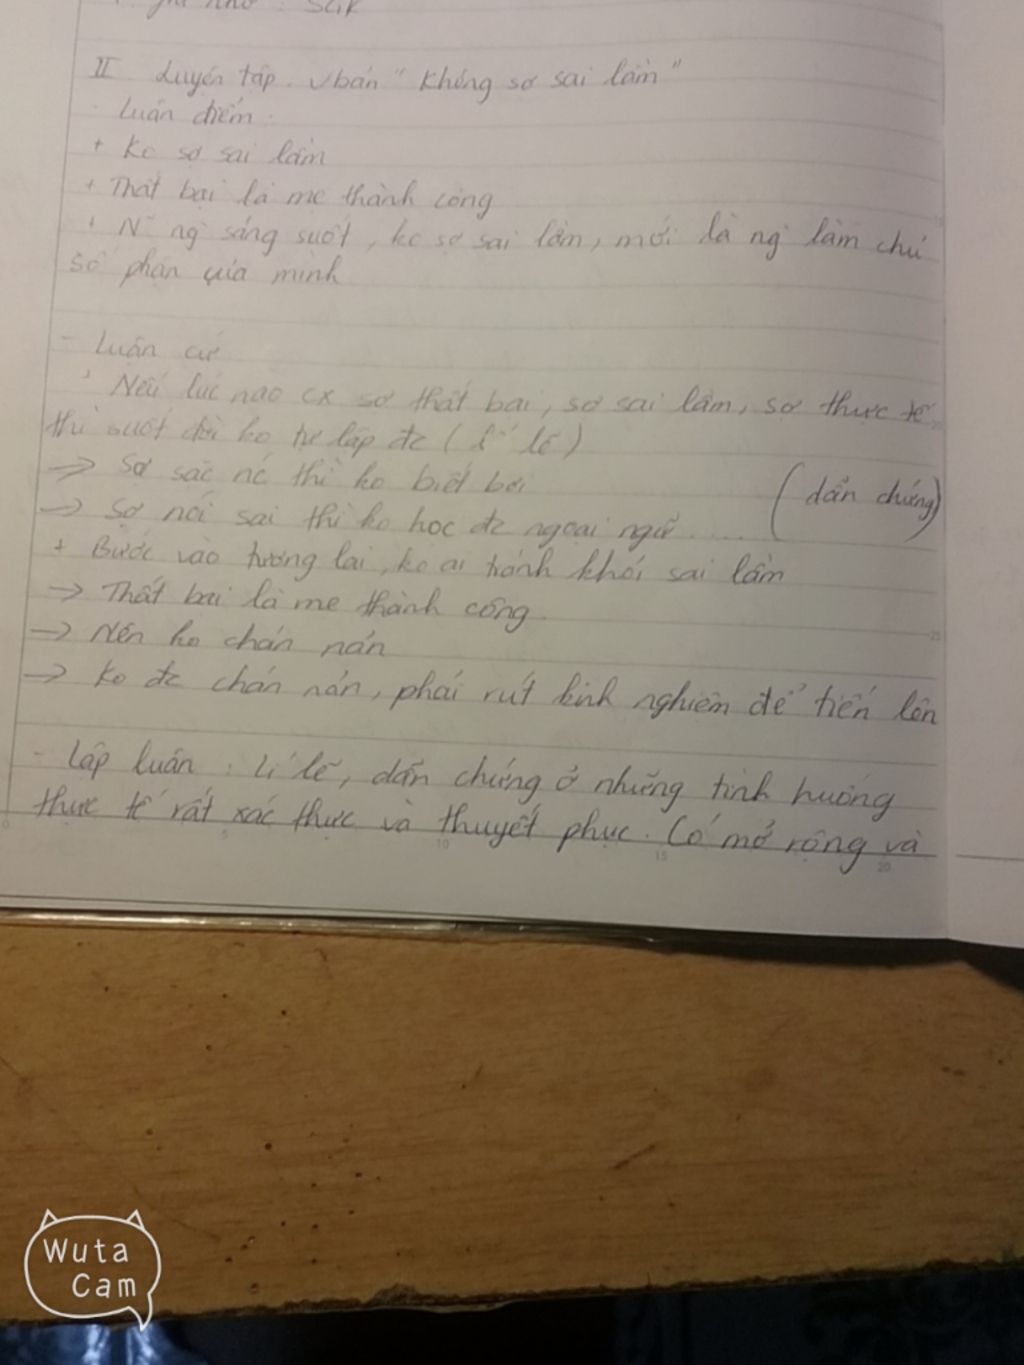 ghi nhớ : SGK
II Luyện tập. Vbản "Không sợ sai lầm"
- Luận điểm.
+ Ko sợ sai lầm
+ Thất bại là mẹ thành công
+ N~ ng sáng suốt, ko sợ sai lầm, mới là ng làm chủ
số phận của mình
- Luận cứ
+ Nếu lúc nào cx sợ thất bại, sợ sai lầm, sợ thực tế
thì suốt đời ko tự lập đc (lí lẽ)
-> Sợ sặc nc thì ko biết bơi
(dẫn chứng)
-> Sợ nói sai thì ko học đc ngoại ngữ.....
+ Bước vào tương lai, ko ai tránh khỏi sai lầm
-> Thất bại là mẹ thành công.
-> Nên ko chán nản
-> Ko đc chán nản, phải rút kinh nghiệm để tiến lên
- Lập luận : Lí lẽ, dẫn chứng ở những tình huống
thực tế rất xác thực và thuyết phục. Có mở rộng và
0 5 10 15 20
Wuta
Cam